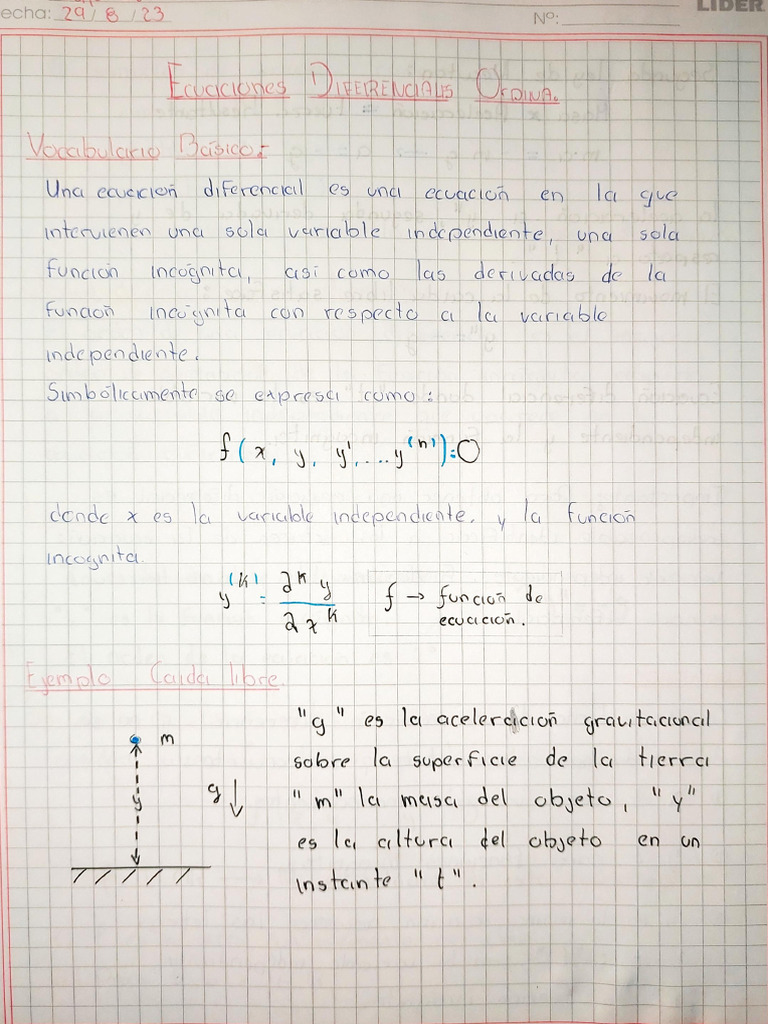 LIDER
echa: 29/8/23
Nº:
Ecuaciones Diferenciales Ordina.
Vocabulario Básico:
Una ecuación diferencial es una ecuación en la que
intervienen una sola variable independiente, una sola
función incógnita, así como las derivadas de la
función incógnita con respecto a la variable
independiente.
Simbólicamente se expresa como:
f(x, y, y', ... y^(n)) = 0
donde x es la variable independiente, y la función
incognita.
y^(k) = ∂^k y / ∂x^k
f → función de
ecuación.
Ejemplo Caida libre.
"g" es la aceleración gravitacional
m
sobre la superficie de la tierra
g
y
"m" la masa del objeto, "y"
es la altura del objeto en un
instante "t".